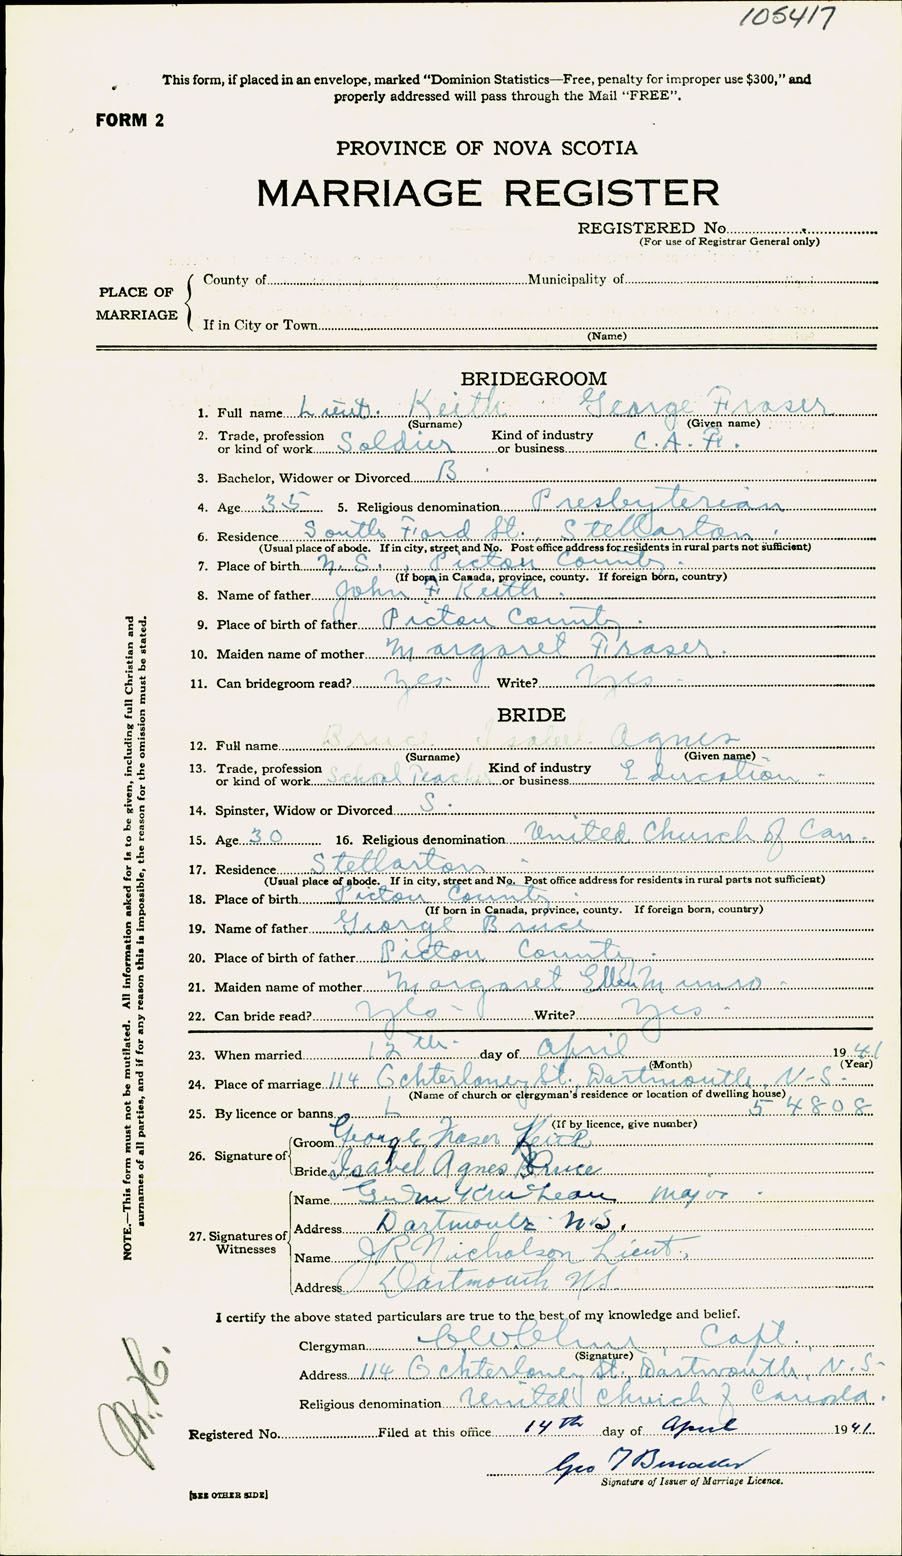 105417
This form, if placed in an envelope, marked “Dominion Statistics—Free, penalty for improper use $300,” and
properly addressed will pass through the Mail “FREE”.
FORM 2
PROVINCE OF NOVA SCOTIA
MARRIAGE REGISTER
REGISTERED No.
(For use of Registrar General only)
PLACE OF MARRIAGE
County of Municipality of
If in City or Town
(Name)
BRIDEGROOM
1. Full name Lieut. Keith George Fraser
(Surname) (Given name)
2. Trade, profession or kind of work Soldier Kind of industry or business C. A. F.
3. Bachelor, Widower or Divorced B
4. Age 35 5. Religious denomination Presbyterian
6. Residence South Ford St., Stellarton
(Usual place of abode. If in city, street and No. Post office address for residents in rural parts not sufficient)
7. Place of birth N. S., Pictou County.
(If born in Canada, province, county. If foreign born, country)
8. Name of father John F Keith.
9. Place of birth of father Pictou County.
10. Maiden name of mother Margaret Fraser.
11. Can bridegroom read? Yes Write? Yes
BRIDE
12. Full name Bruce Isabel Agnes
(Surname) (Given name)
13. Trade, profession or kind of work School Teacher Kind of industry or business Education
14. Spinster, Widow or Divorced S.
15. Age 30 16. Religious denomination United Church of Can.
17. Residence Stellarton
(Usual place of abode. If in city, street and No. Post office address for residents in rural parts not sufficient)
18. Place of birth Pictou County
(If born in Canada, province, county. If foreign born, country)
19. Name of father George Bruce
20. Place of birth of father Pictou County.
21. Maiden name of mother Margaret Ellen Munro
22. Can bride read? Yes Write? Yes
23. When married 12th day of April 1941
(Month) (Year)
24. Place of marriage 114 Ochterloney St., Dartmouth, N-S.
(Name of church or clergyman's residence or location of dwelling house)
25. By licence or banns L 54808
(If by licence, give number)
26. Signature of
Groom George Fraser Keith
Bride Isabel Agnes Bruce
27. Signatures of Witnesses
Name Major
Address Dartmouth N.S.
Name J R Nicholson Lieut.
Address Dartmouth N.S.
I certify the above stated particulars are true to the best of my knowledge and belief.
Clergyman Capt.
(Signature)
Address 114 Ochterloney St. Dartmouth, N.S-
Religious denomination United Church of Canada.
Registered No. Filed at this office 14th day of April 1941
Geo T
Signature of Issuer of Marriage Licence.
[SEE OTHER SIDE]
NOTE.—This form must not be mutilated. All information asked for is to be given, including full Christian and
surnames of all parties, and if for any reason this is impossible, the reason for the omission must be stated.